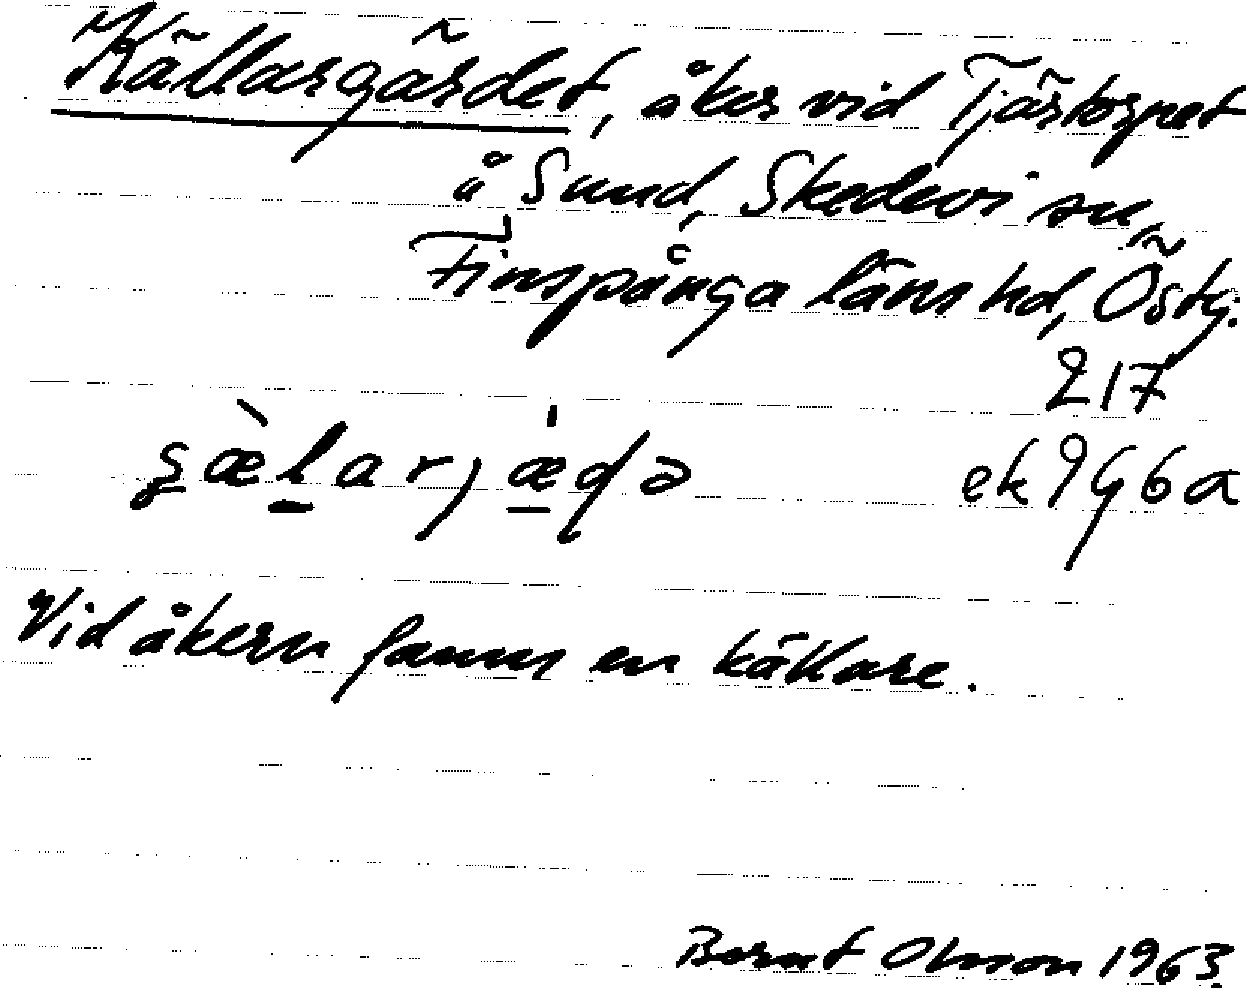 Källargärdet, åker vid Tjärtorpet
å Sund, Skedevi sn,
Finspånga läns hd, Östg.
217
ek 9G6a
Vid åkern fanns en källare.
Bernt Olsson 1963.